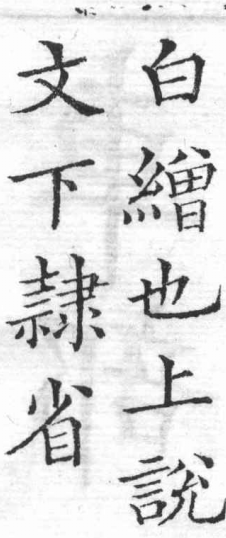 白繒也上說
文下隷省